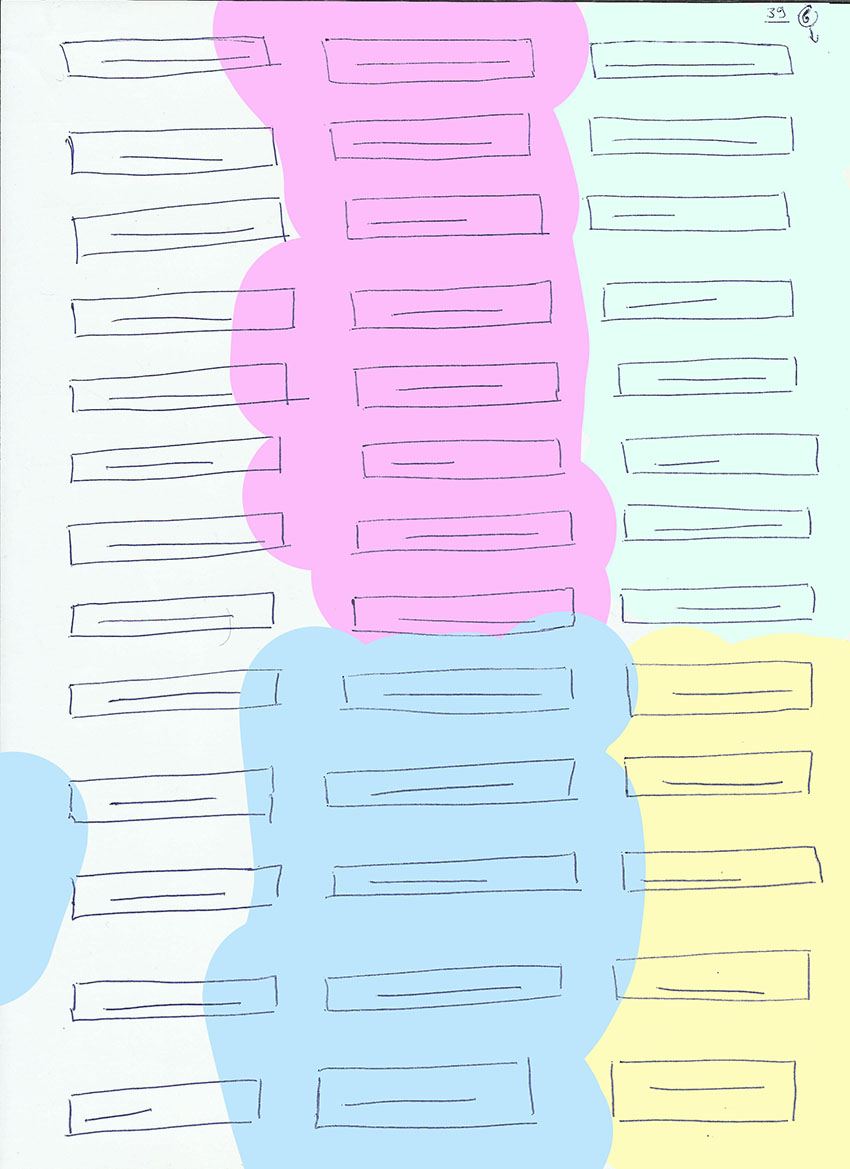 39 6